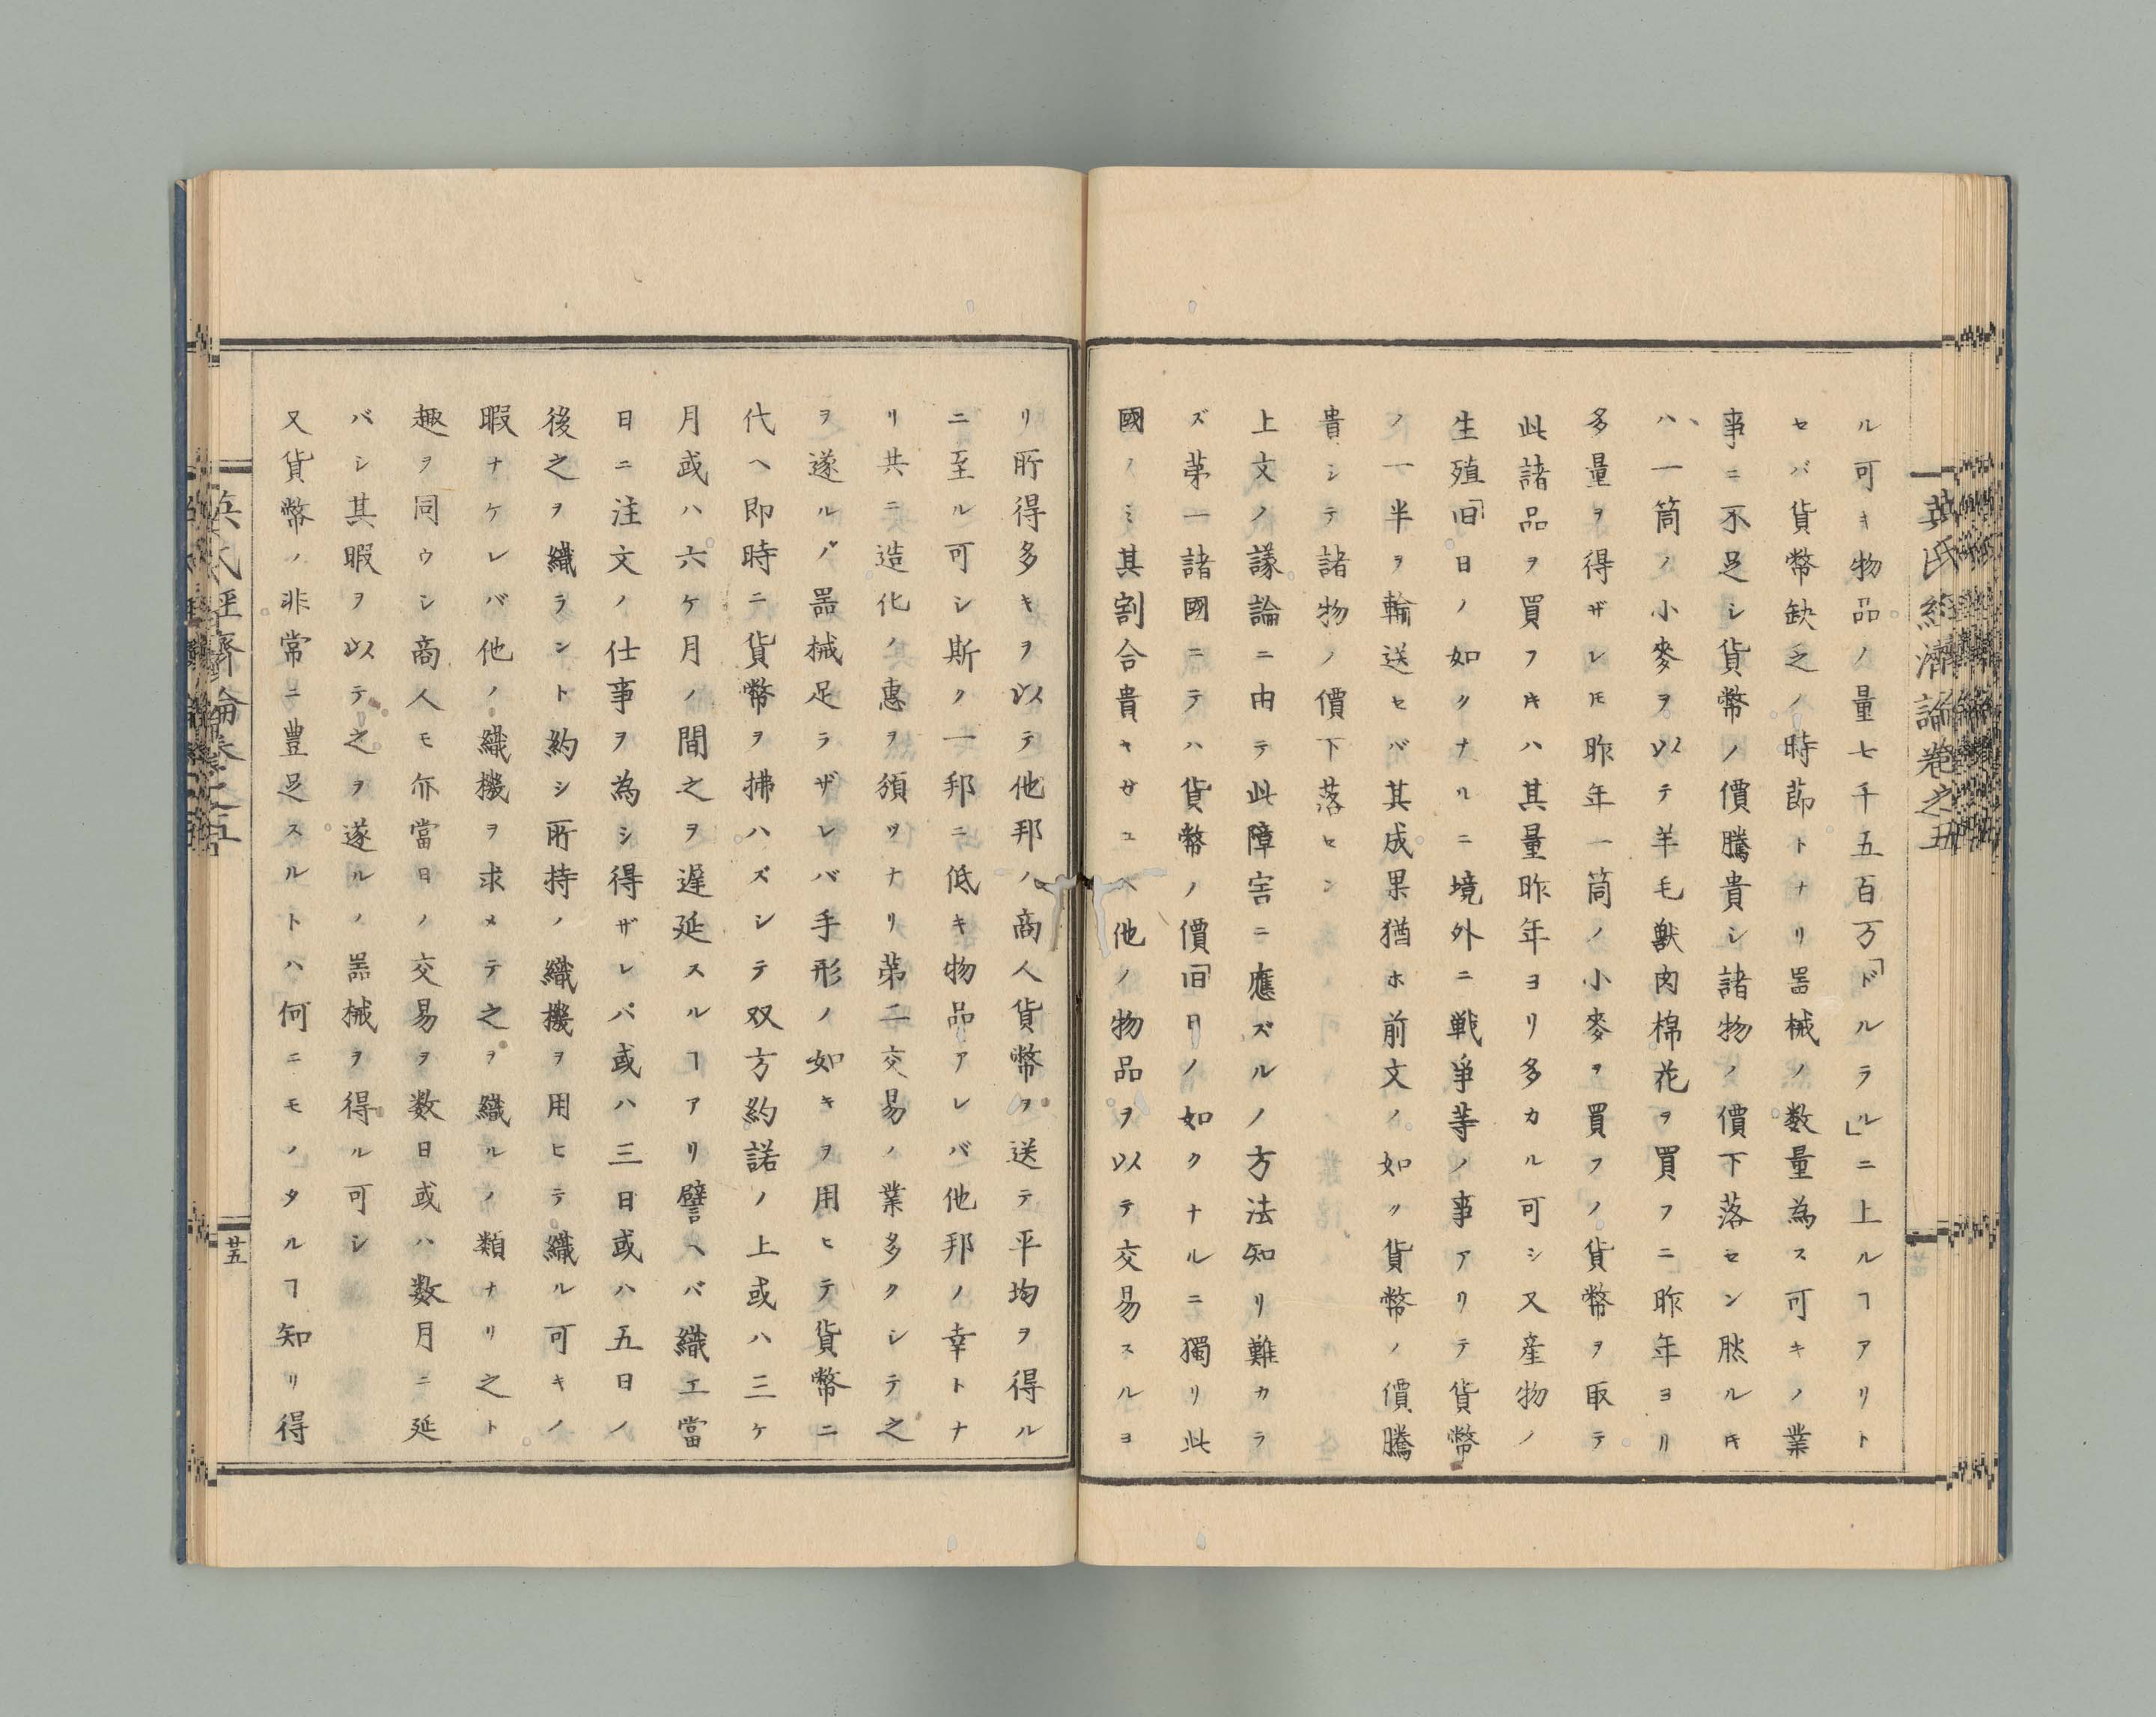 英氏経濟論卷之五
ル可キ物品ノ量七千五百万「ドルラル」ニ上ルヿアリト
セバ貨幣缺乏ノ時節トナリ噐械ノ数量為ス可キノ業
事ニ不足シ貨幣ノ價騰貴シ諸物ノ價下落セン然ルキ
ハ一筒ノ小麥ヲ以テ羊毛獣肉棉花ヲ買フニ昨年ヨリ
多量ヲ得ザレ𪜈昨年一筒ノ小麥ヲ買フノ貨幣ヲ取テ
此諸品ヲ買フ𪜈ハ其量昨年ヨリ多カル可シ又産物ノ
生殖旧日ノ如クナルニ境外ニ戦爭等ノ事アリテ貨幣
ノ一半ヲ輸送セバ其成果猶ホ前文ノ如ク貨幣ノ價騰
貴シテ諸物ノ價下落セン
上文ノ議論ニ由テ此障害ニ應ズルノ方法知リ難カラ
ズ苐一諸國ニテハ貨幣ノ價旧日ノ如クナルニ獨リ此
國ノミ其割合貴キサユヘ他ノ物品ヲ以テ交易スルヨ
リ所得多キヲ以テ他邦ノ商人貨幣ヲ送テ平均ヲ得ル
ニ至ル可シ斯ク一邦ニ低キ物品アレバ他邦ノ幸トナ
リ共ニ造化ノ惠ヲ須ツナリ苐二交易ノ業多クシテ之
ヲ遂ルノ噐械足ラザレバ手形ノ如キヲ用ヒテ貨幣ニ
代ヘ即時ニ貨幣ヲ拂ハズシテ双方約諾ノ上或ハ三ケ
月或ハ六ケ月ノ間之ヲ遲延スルヿアリ譬ヘバ織工當
日ニ注文ノ仕事ヲ為シ得ザレバ或ハ三日或ハ五日ノ
後之ヲ織ラント約シ所持ノ織機ヲ用ヒテ織ル可キノ
暇ナケレバ他ノ織機ヲ求メテ之ヲ織ルノ類ナリ之ト
趣ヲ同ウシ商人モ亦當日ノ交易ヲ数日或ハ数月ニ延
バシ其暇ヲ以テ之ヲ遂ルノ噐械ヲ得ル可シ
又貨幣ノ非常ニ豊足スルトハ何ニモノタルヿ知リ得
英氏経齊論卷之五
廿五